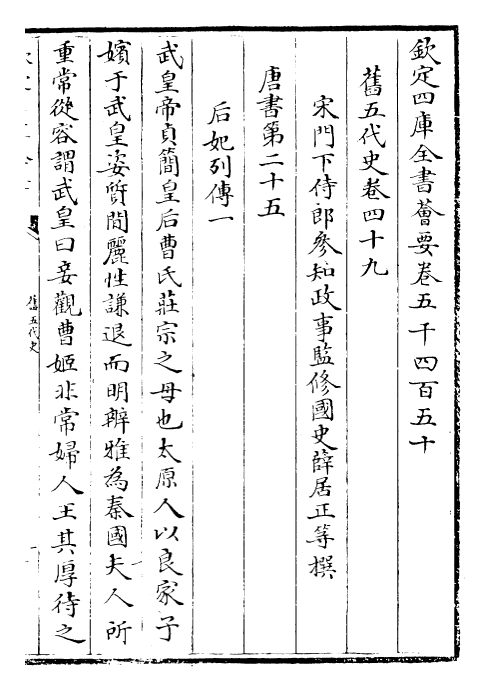 欽定四庫全書薈要卷五千四百五十
舊五代史卷四十九
宋門下侍郎參知政事監修國史薛居正等撰
唐書第二十五
后妃列傳一
武皇帝貞簡皇后曹氏莊宗之母也太原人以良家子
嬪于武皇姿質閒麗性謙退而明辨雅為秦國夫人所
重常從容謂武皇曰妾觀曹姬非常婦人王其厚待之
舊五代史